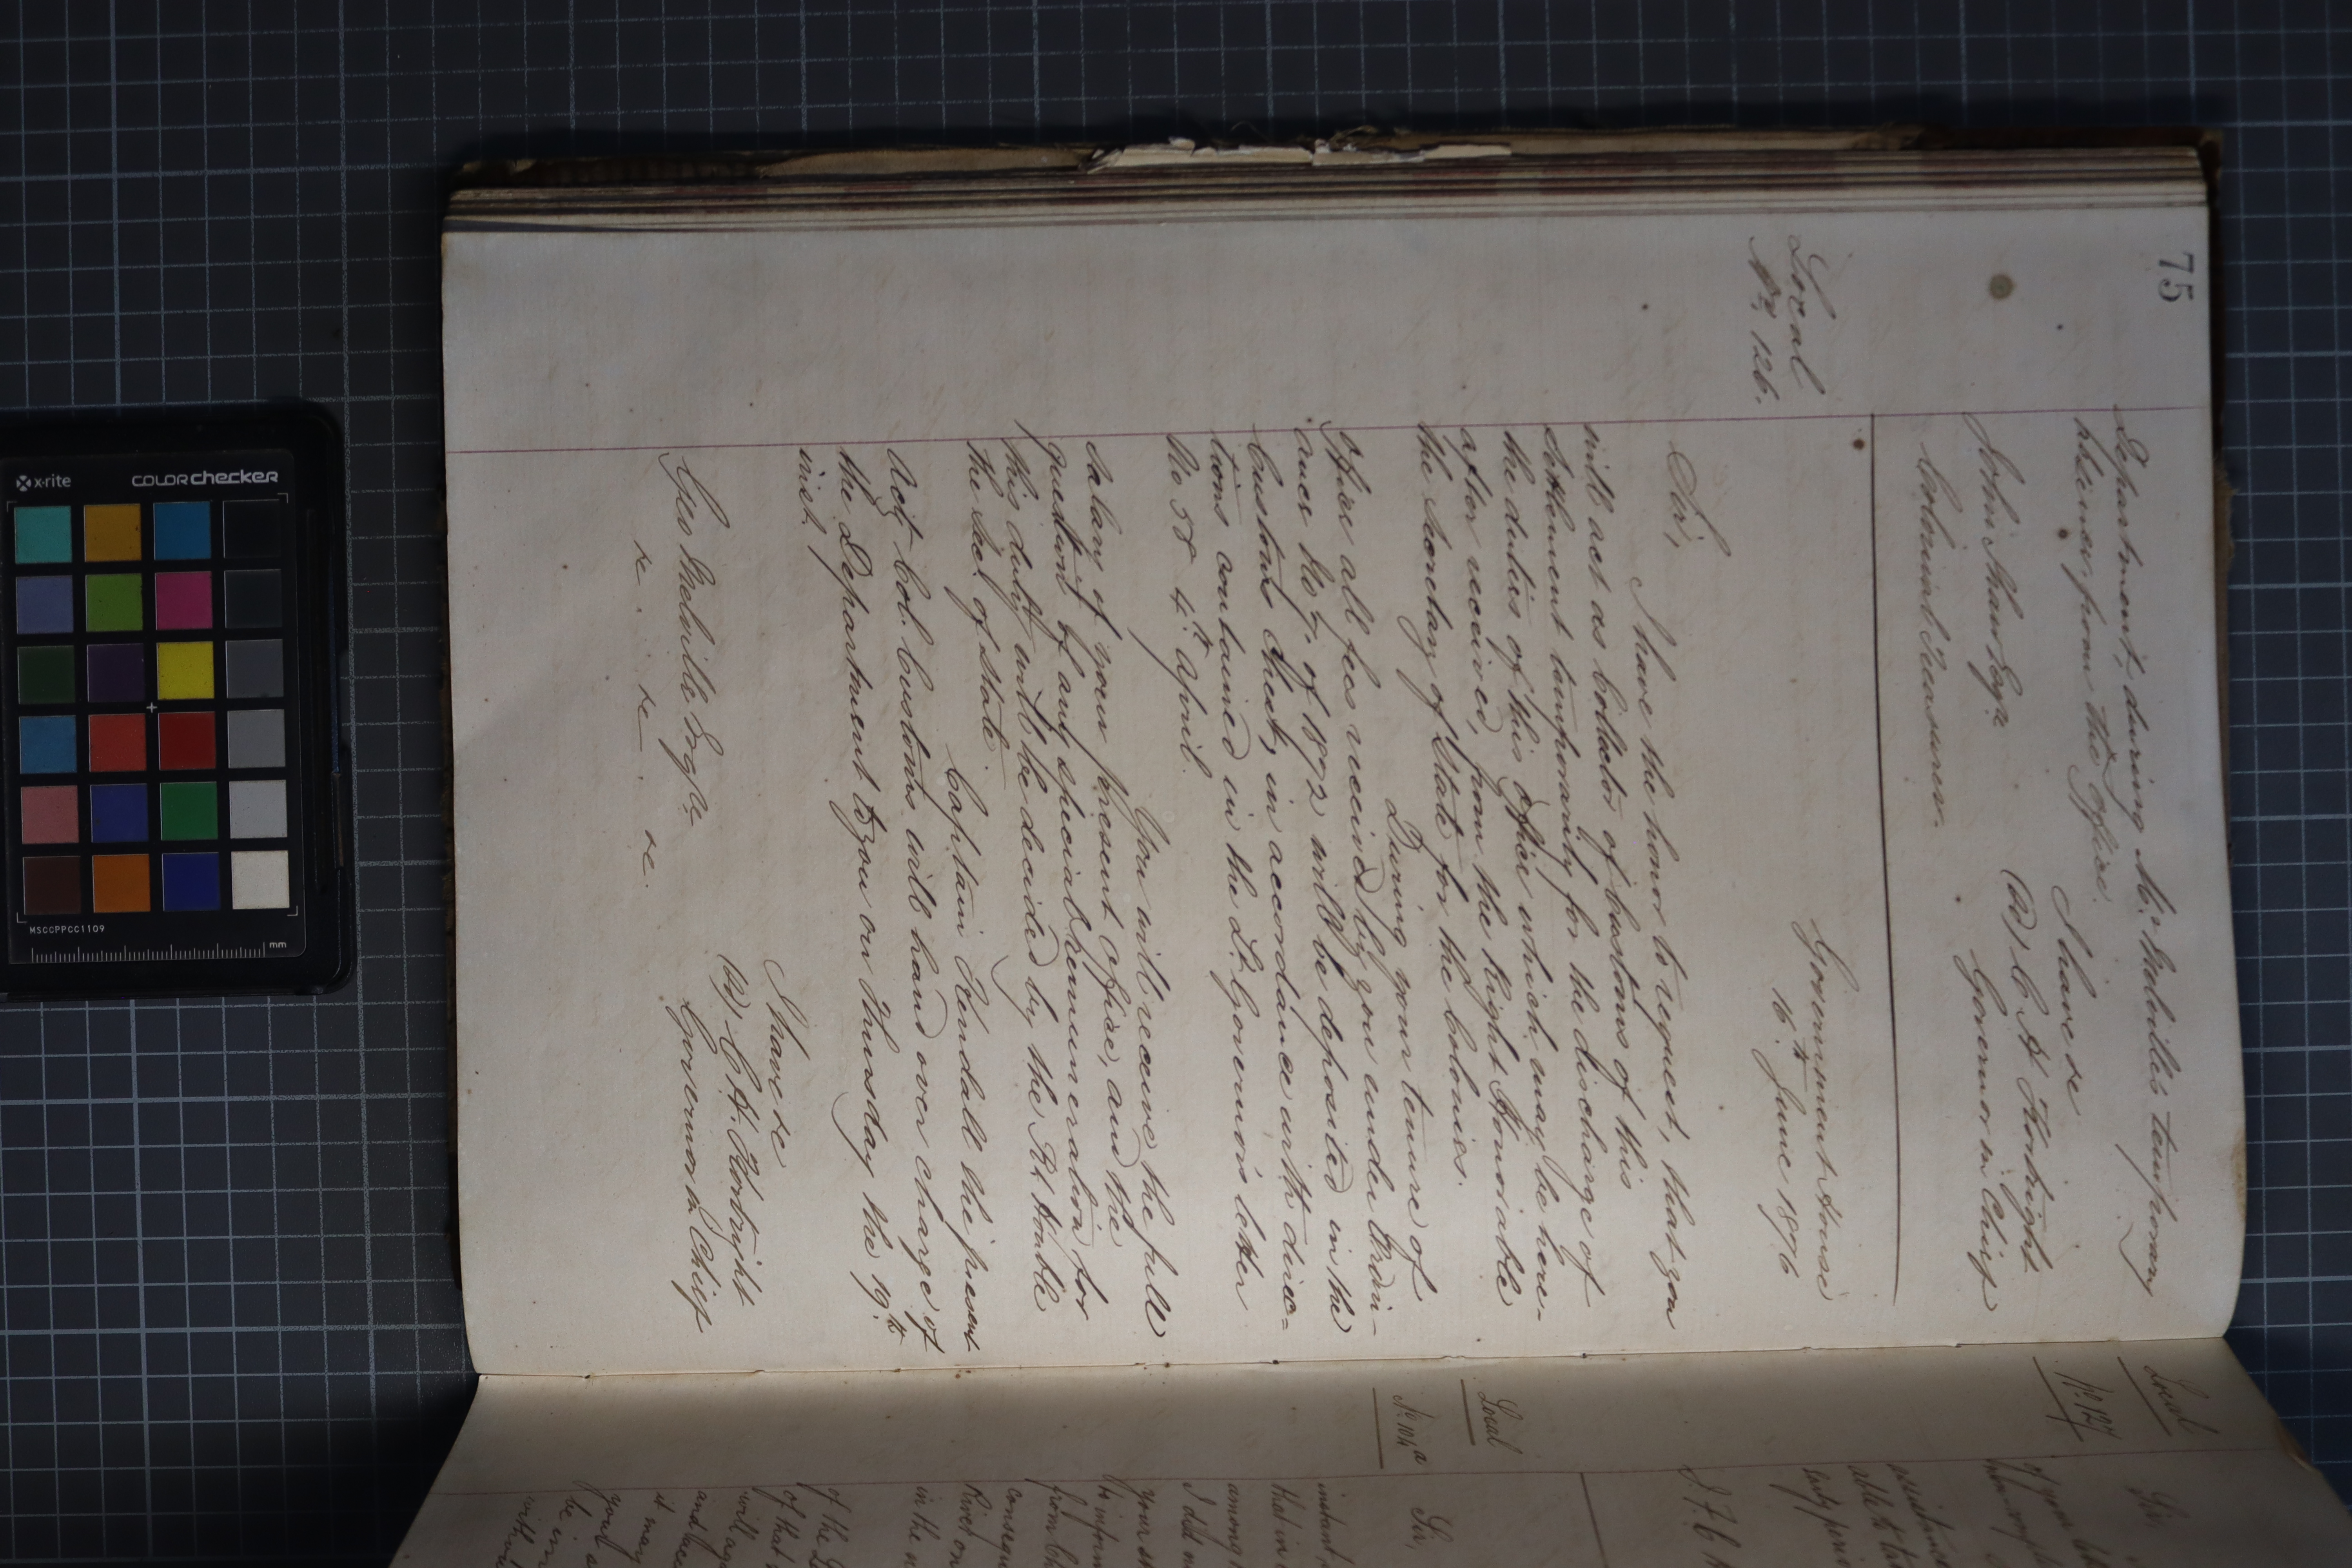 75
Department, during Mr. Melville's temporary
absence from the Office.
I have &c
(Sd) C. H. Kortright
Governor in Chief
John Shaw Esqr.
Colonial Treasurer.
Local
No. 126.
Government House
16th June 1876
Sir,
I have the honor to request, that you
will act as Collector of Customs of this
Settlement temporarily for the discharge of
the duties of this office which may be here-
after received, from the Right Honorable
the Secretary of State for the Colonies.
During your tenure of
Office all fees received by you under Ordin-
ance No 7. of 1872 will be deposited in the
Customs Chest, in accordance with direc=
tions contained in the Lt. Governor's letter
No 58 4th April.
You will receive the full
salary of your present Office, and the
question of any special remuneration for
this duty will be decided by the Rt Honble
the Sec. of State.
Captain Kendall the present
Actg Col. Customs will hand over charge of
the Department to you on Thursday the 19th
inst.
I have &c
(Sd) C. H. Kortright
Governor in Chief
Geo Melville Esqre.
&c. &c. &c.
Local
No. 127
Sir,
of your
assistance
able to
early
Local
No. 104a
Sir,
instant
that in
among
I did
your
from
in the
of the
of that
will
and
it may
your
be
with